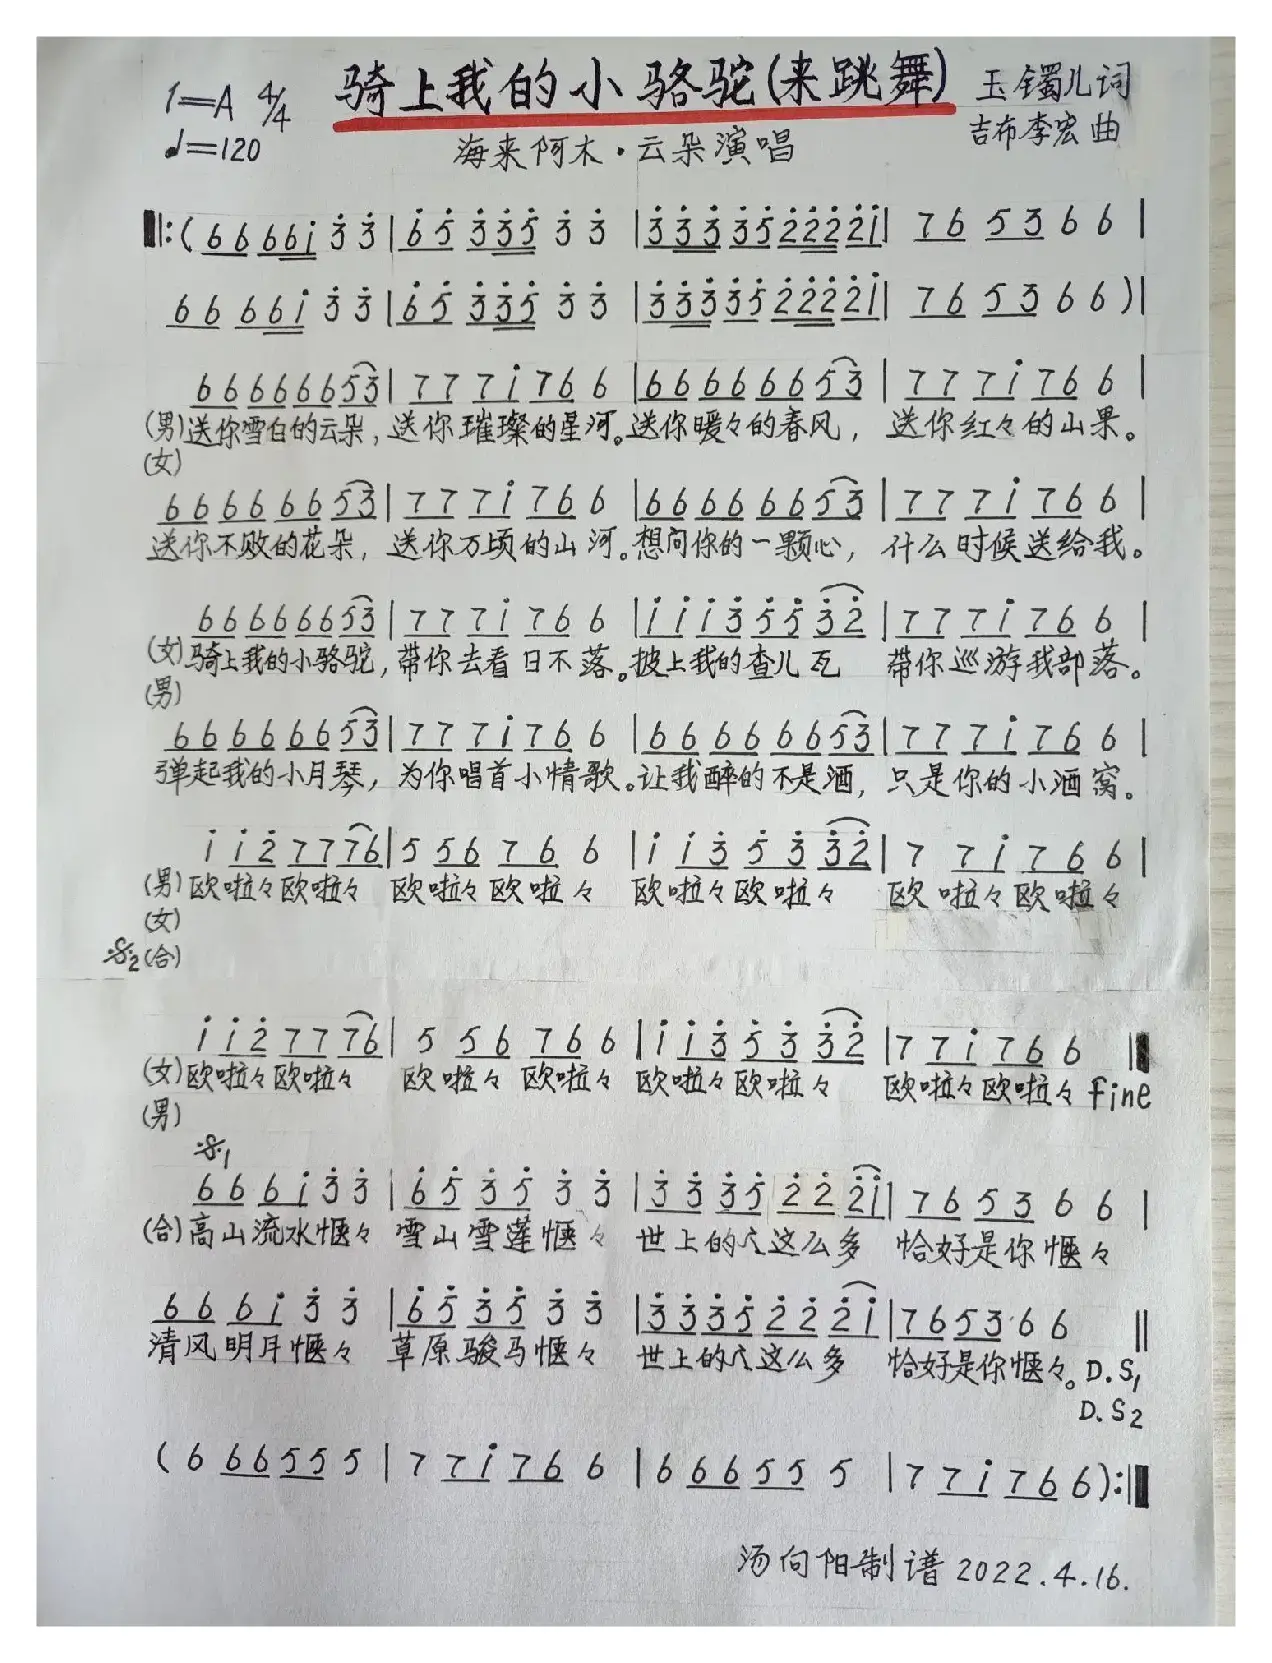 1=A 4/4 骑上我的小骆驼(来跳舞) 玉镯儿词
♩=120 海来阿木·云朵演唱 吉布李宏曲
‖:(6 6 6 6 i 3̇ 3̇ | 6̇ 5̇ 3̇ 3̇ 5̇ 3̇ 3̇ | 3̇ 3̇ 3̇ 3̇ 5̇ 2̇ 2̇ 2̇ 2̇ i | 7 6 5 3 6 6 |
6 6 6 6 i 3̇ 3̇ | 6̇ 5̇ 3̇ 3̇ 5̇ 3̇ 3̇ | 3̇ 3̇ 3̇ 3̇ 5̇ 2̇ 2̇ 2̇ 2̇ i | 7 6 5 3 6 6 )|
6 6 6 6 6 6 5 3 | 7 7 7 i 7 6 6 | 6 6 6 6 6 6 5 3 | 7 7 7 i 7 6 6 |
(男)送你雪白的云朵，送你璀璨的星河。送你暖々的春风，送你红々的山果。
(女)
6 6 6 6 6 6 5 3 | 7 7 7 i 7 6 6 | 6 6 6 6 6 6 5 3 | 7 7 7 i 7 6 6 |
送你不败的花朵，送你万顷的山河。想问你的一颗心，什么时候送给我。
6 6 6 6 6 6 5 3 | 7 7 7 i 7 6 6 | i i i 3̇ 5̇ 5̇ 3̇ 2̇ | 7 7 7 i 7 6 6 |
(女)骑上我的小骆驼，带你去看日不落。披上我的查儿瓦 带你巡游我部落。
(男)
6 6 6 6 6 6 5 3 | 7 7 7 i 7 6 6 | 6 6 6 6 6 6 5 3 | 7 7 7 i 7 6 6 |
弹起我的小月琴，为你唱首小情歌。让我醉的不是酒，只是你的小酒窝。
i i 2̇ 7 7 7 6 | 5 5 6 7 6 6 | i i 3̇ 5̇ 3̇ 3̇ 2̇ | 7 7 i 7 6 6 |
(男)欧啦々欧啦々 欧啦々欧啦々 欧啦々欧啦々 欧啦々欧啦々
(女)
𝄋2(合)
i i 2̇ 7 7 7 6 | 5 5 6 7 6 6 | i i 3̇ 5̇ 3̇ 3̇ 2̇ | 7 7 i 7 6 6 ‖
(女)欧啦々欧啦々 欧啦々欧啦々 欧啦々欧啦々 欧啦々欧啦々 fine
(男)
𝄋1
6 6 6 i 3̇ 3̇ | 6̇ 5̇ 3̇ 5̇ 3̇ 3̇ | 3̇ 3̇ 3̇ 5̇ 2̇ 2̇ 2̇ i | 7 6 5 3 6 6 |
(合)高山流水惬々 雪山雪莲惬々 世上的人这么多 恰好是你惬々
6 6 6 i 3̇ 3̇ | 6̇ 5̇ 3̇ 5̇ 3̇ 3̇ | 3̇ 3̇ 3̇ 5̇ 2̇ 2̇ 2̇ i | 7 6 5 3 6 6 ‖
清风明月惬々 草原骏马惬々 世上的人这么多 恰好是你惬々。D.S1
D.S2
( 6 6 6 5 5 5 | 7 7 i 7 6 6 | 6 6 6 5 5 5 | 7 7 i 7 6 6 ):‖
汤向阳制谱 2022.4.16.